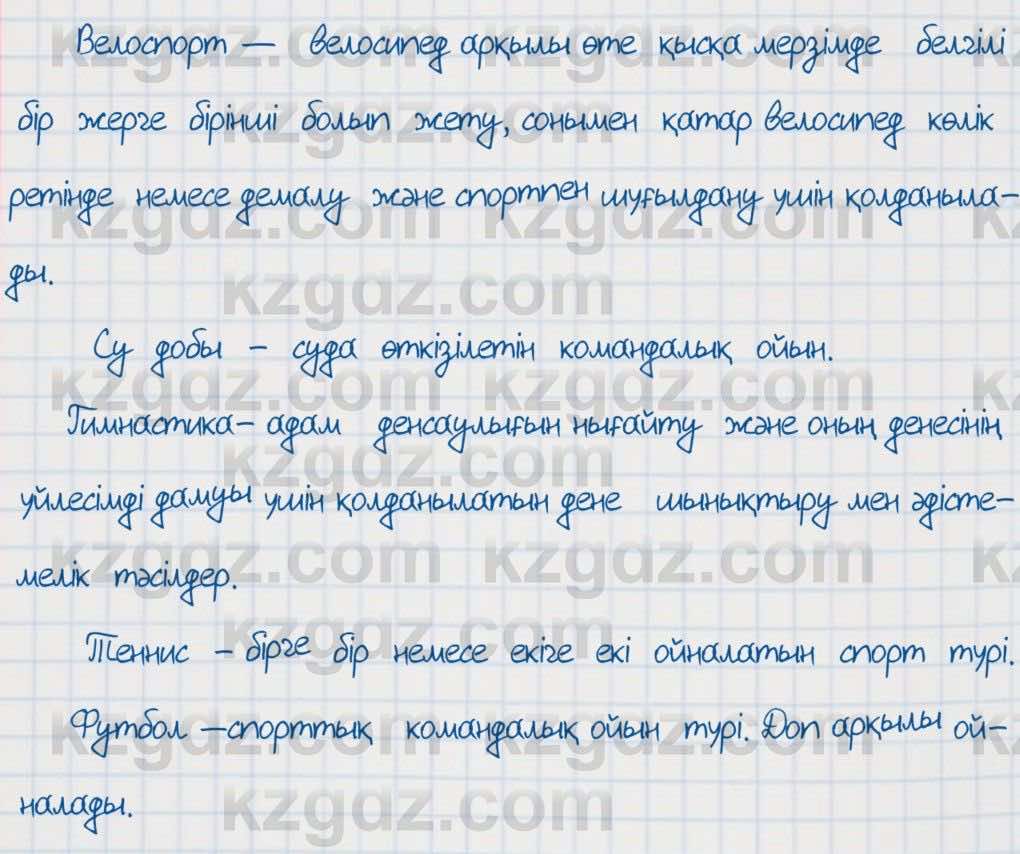 Велоспорт — велосипед арқылы өте қысқа мерзімде белгілі
бір жерге бірінші болып жету, сонымен қатар велосипед көлік
ретінде немесе демалу және спортпен шуғылдану үшін қолданыла-
ды.
Су добы – суда өткізілетін командалық ойын.
Гимнастика – адам денсаулығын нығайту және оның денесінің
үйлесімді дамуы үшін қолданылатын дене шынықтыру мен әдісте-
мелік тәсілдер.
Теннис – бірге бір немесе екіге екі ойналатын спорт түрі.
Футбол — спорттық командалық ойын түрі. Доп арқылы ой-
налады.